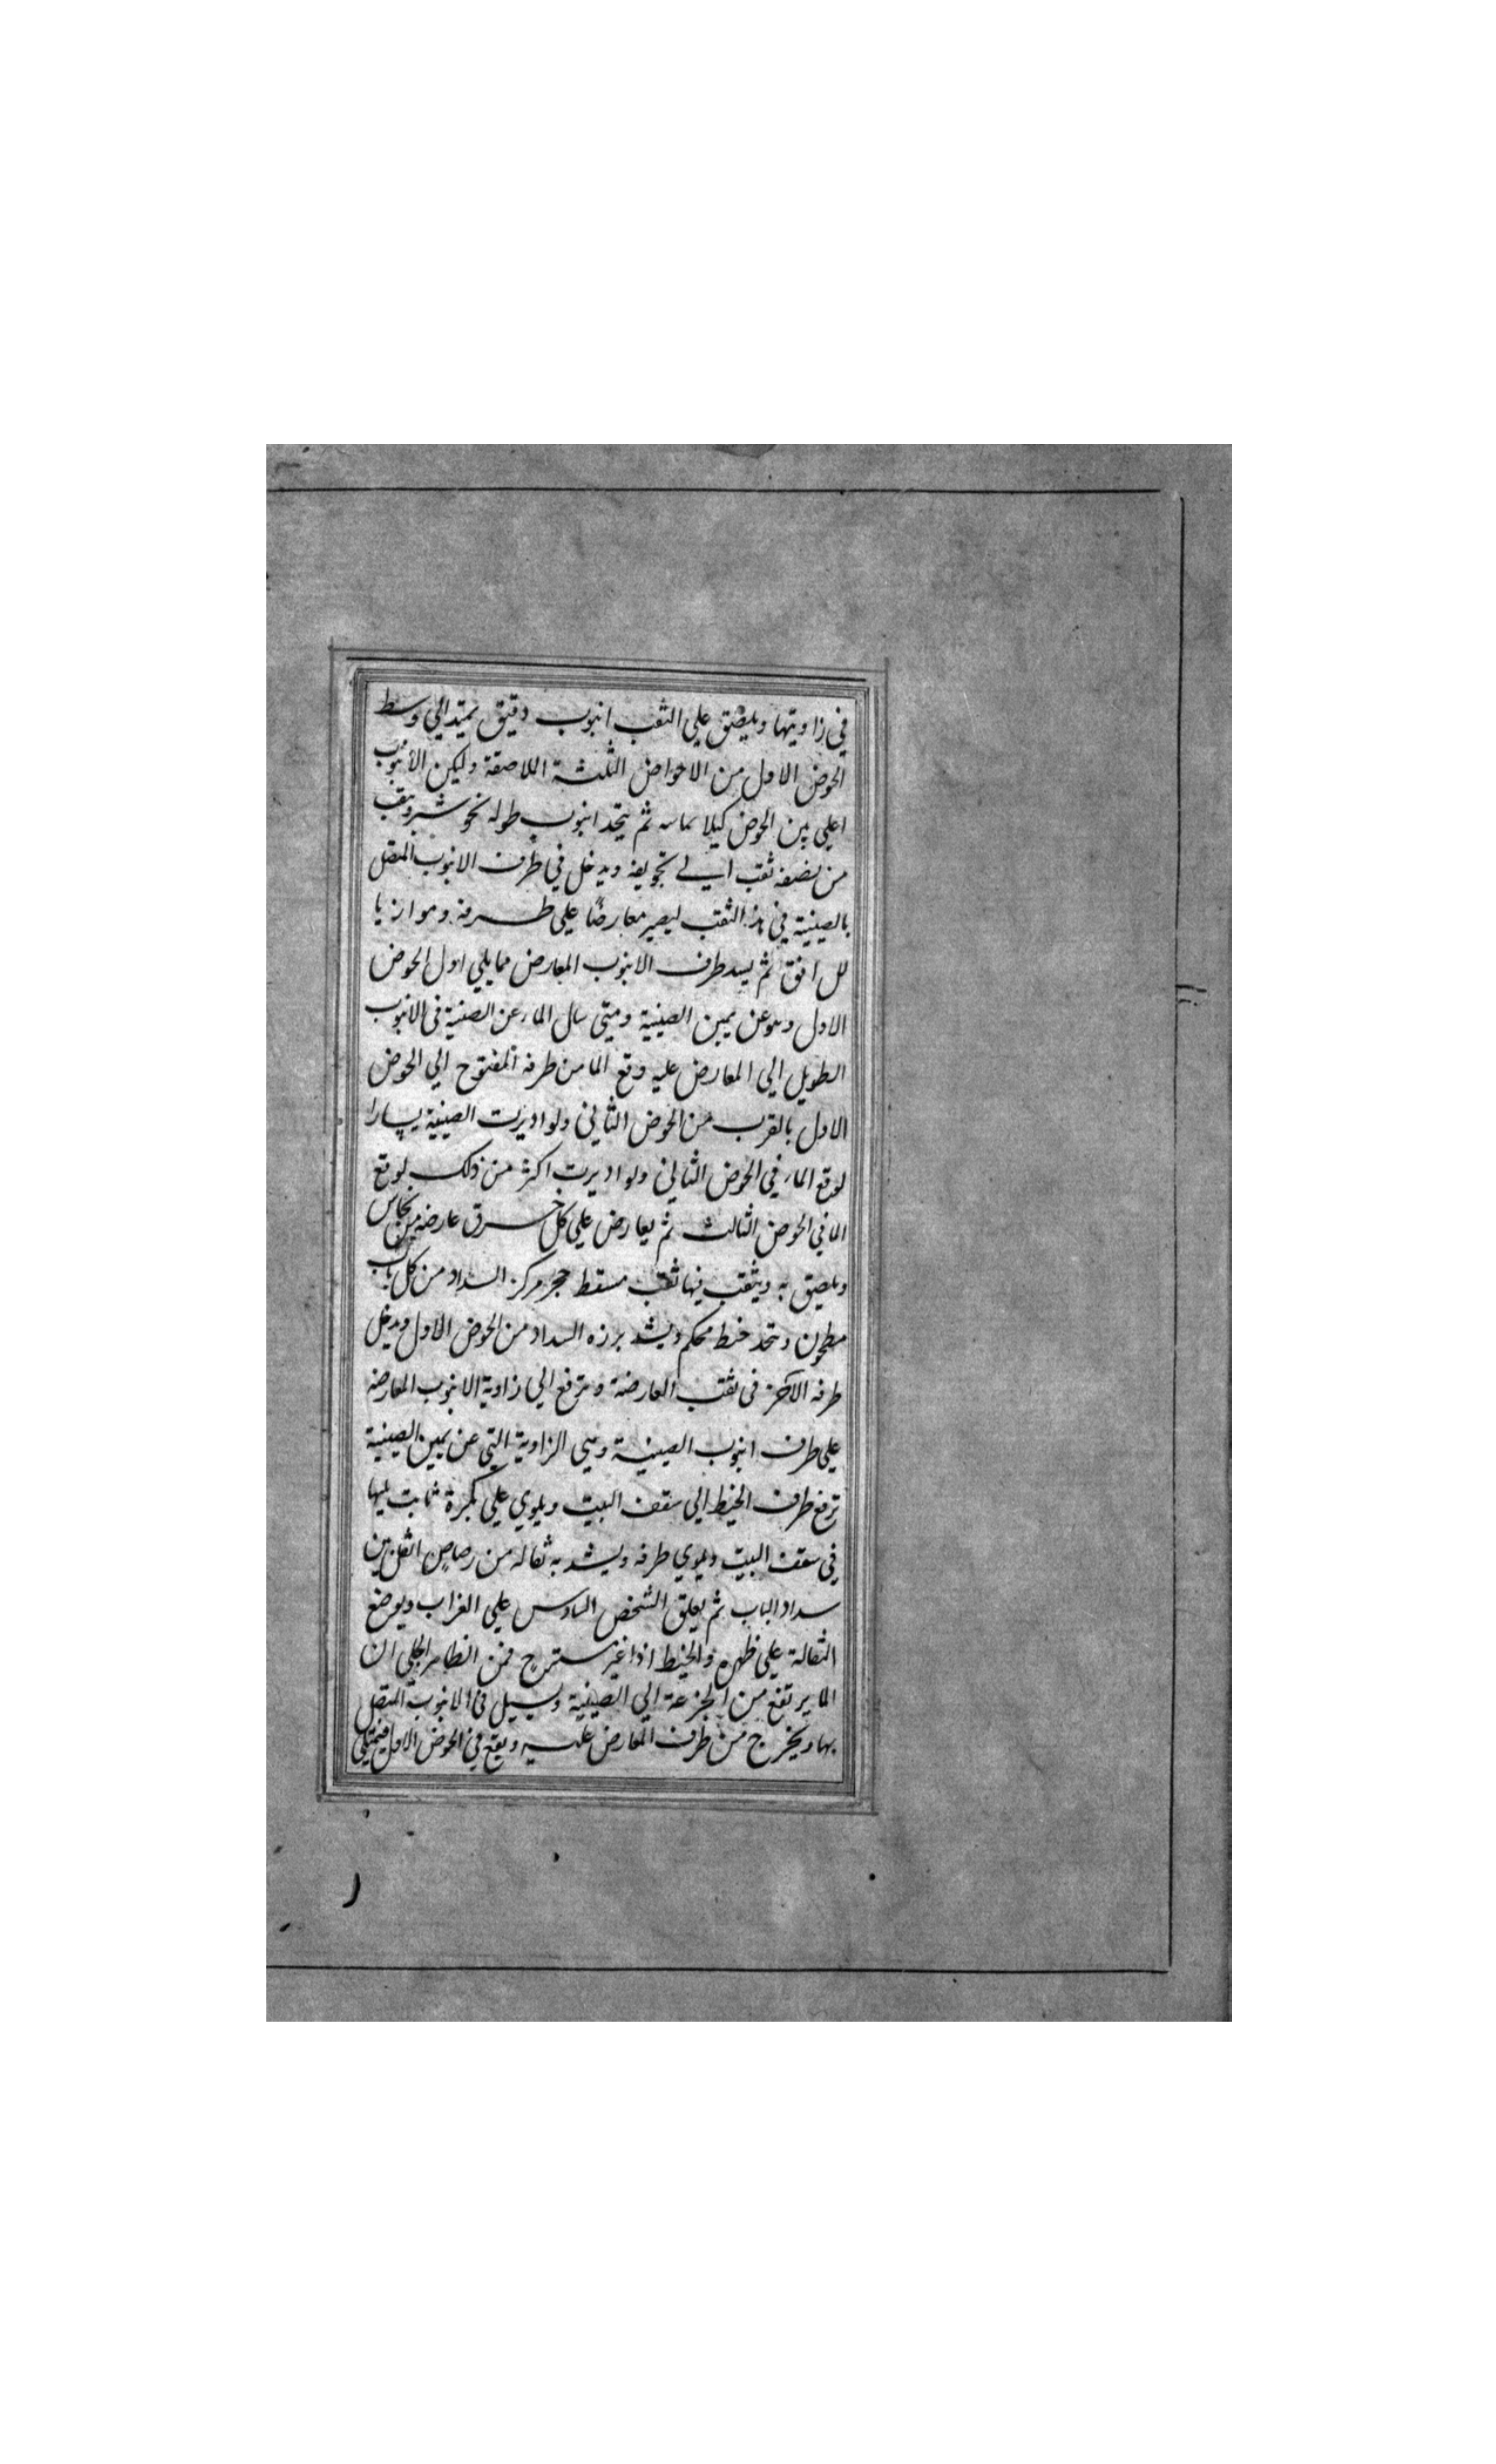 في زاويتها ويلصق علي الثقب انبوب دقيق يمتد الي وسط
الحوض الاول من الاحواض الثلثة اللاصقة وليكن الانبوب
اعلي من الحوض كيلا يماسه ثم يتخذ انبوب طوله نحو شبر ويثقب
من نصفه ثقب الي تجويفه ويدخل في طرف الانبوب المتصل
بالصينية في هذا الثقب ليصير معارضًا علي طرفه وموازيا
للافق ثم يسد طرف الانبوب المعارض مما يلي اول الحوض
الاول وهو عن يمين الصينية ومتي سال الماء عن الصينية في الانبوب
الطويل الي المعارض عليه وقع الما من طرفه المفتوح الي الحوض
الاول بالقرب من الحوض الثاني ولو اديرت الصينية يسارا
لوقع الماء في الحوض الثاني ولو اديرت اكثر من ذلك لوقع
الما في الحوض الثالث ثم يعارض علي كل خرق عارضة من نحاس
ويلصق به ويثقب فيها ثقب مسقط حجر مركز السداد من كل باب
مطحون ويتخذ خيط محكم ويشد برزه السداد من الحوض الاول ويدخل
طرفه الاخر في ثقب العارضة ويرفع الي زاوية الانبوب المعارضة
علي طرف انبوب الصينية وهي الزاوية التي عن يمين الصينية
ترفع طرف الخيط الي سقف البيت ويلوي علي بكرة ثابت ليها
في سقف البيت ويلوي طرفه ويشد به ثقالة من رصاص اثقل من
سداد الباب ثم يعلق الشخص السادس علي الغراب ويوضع
الثقالة علي ظهره والخيط اذا غير مسترخ فمن الظاهر الجلي ان
الما يرتفع من الجزعة الي الصينية ويسيل في الانبوب المتصل
بها ويخرج من طرف المعارض عليه ويقع في الحوض الاول فيمتلي